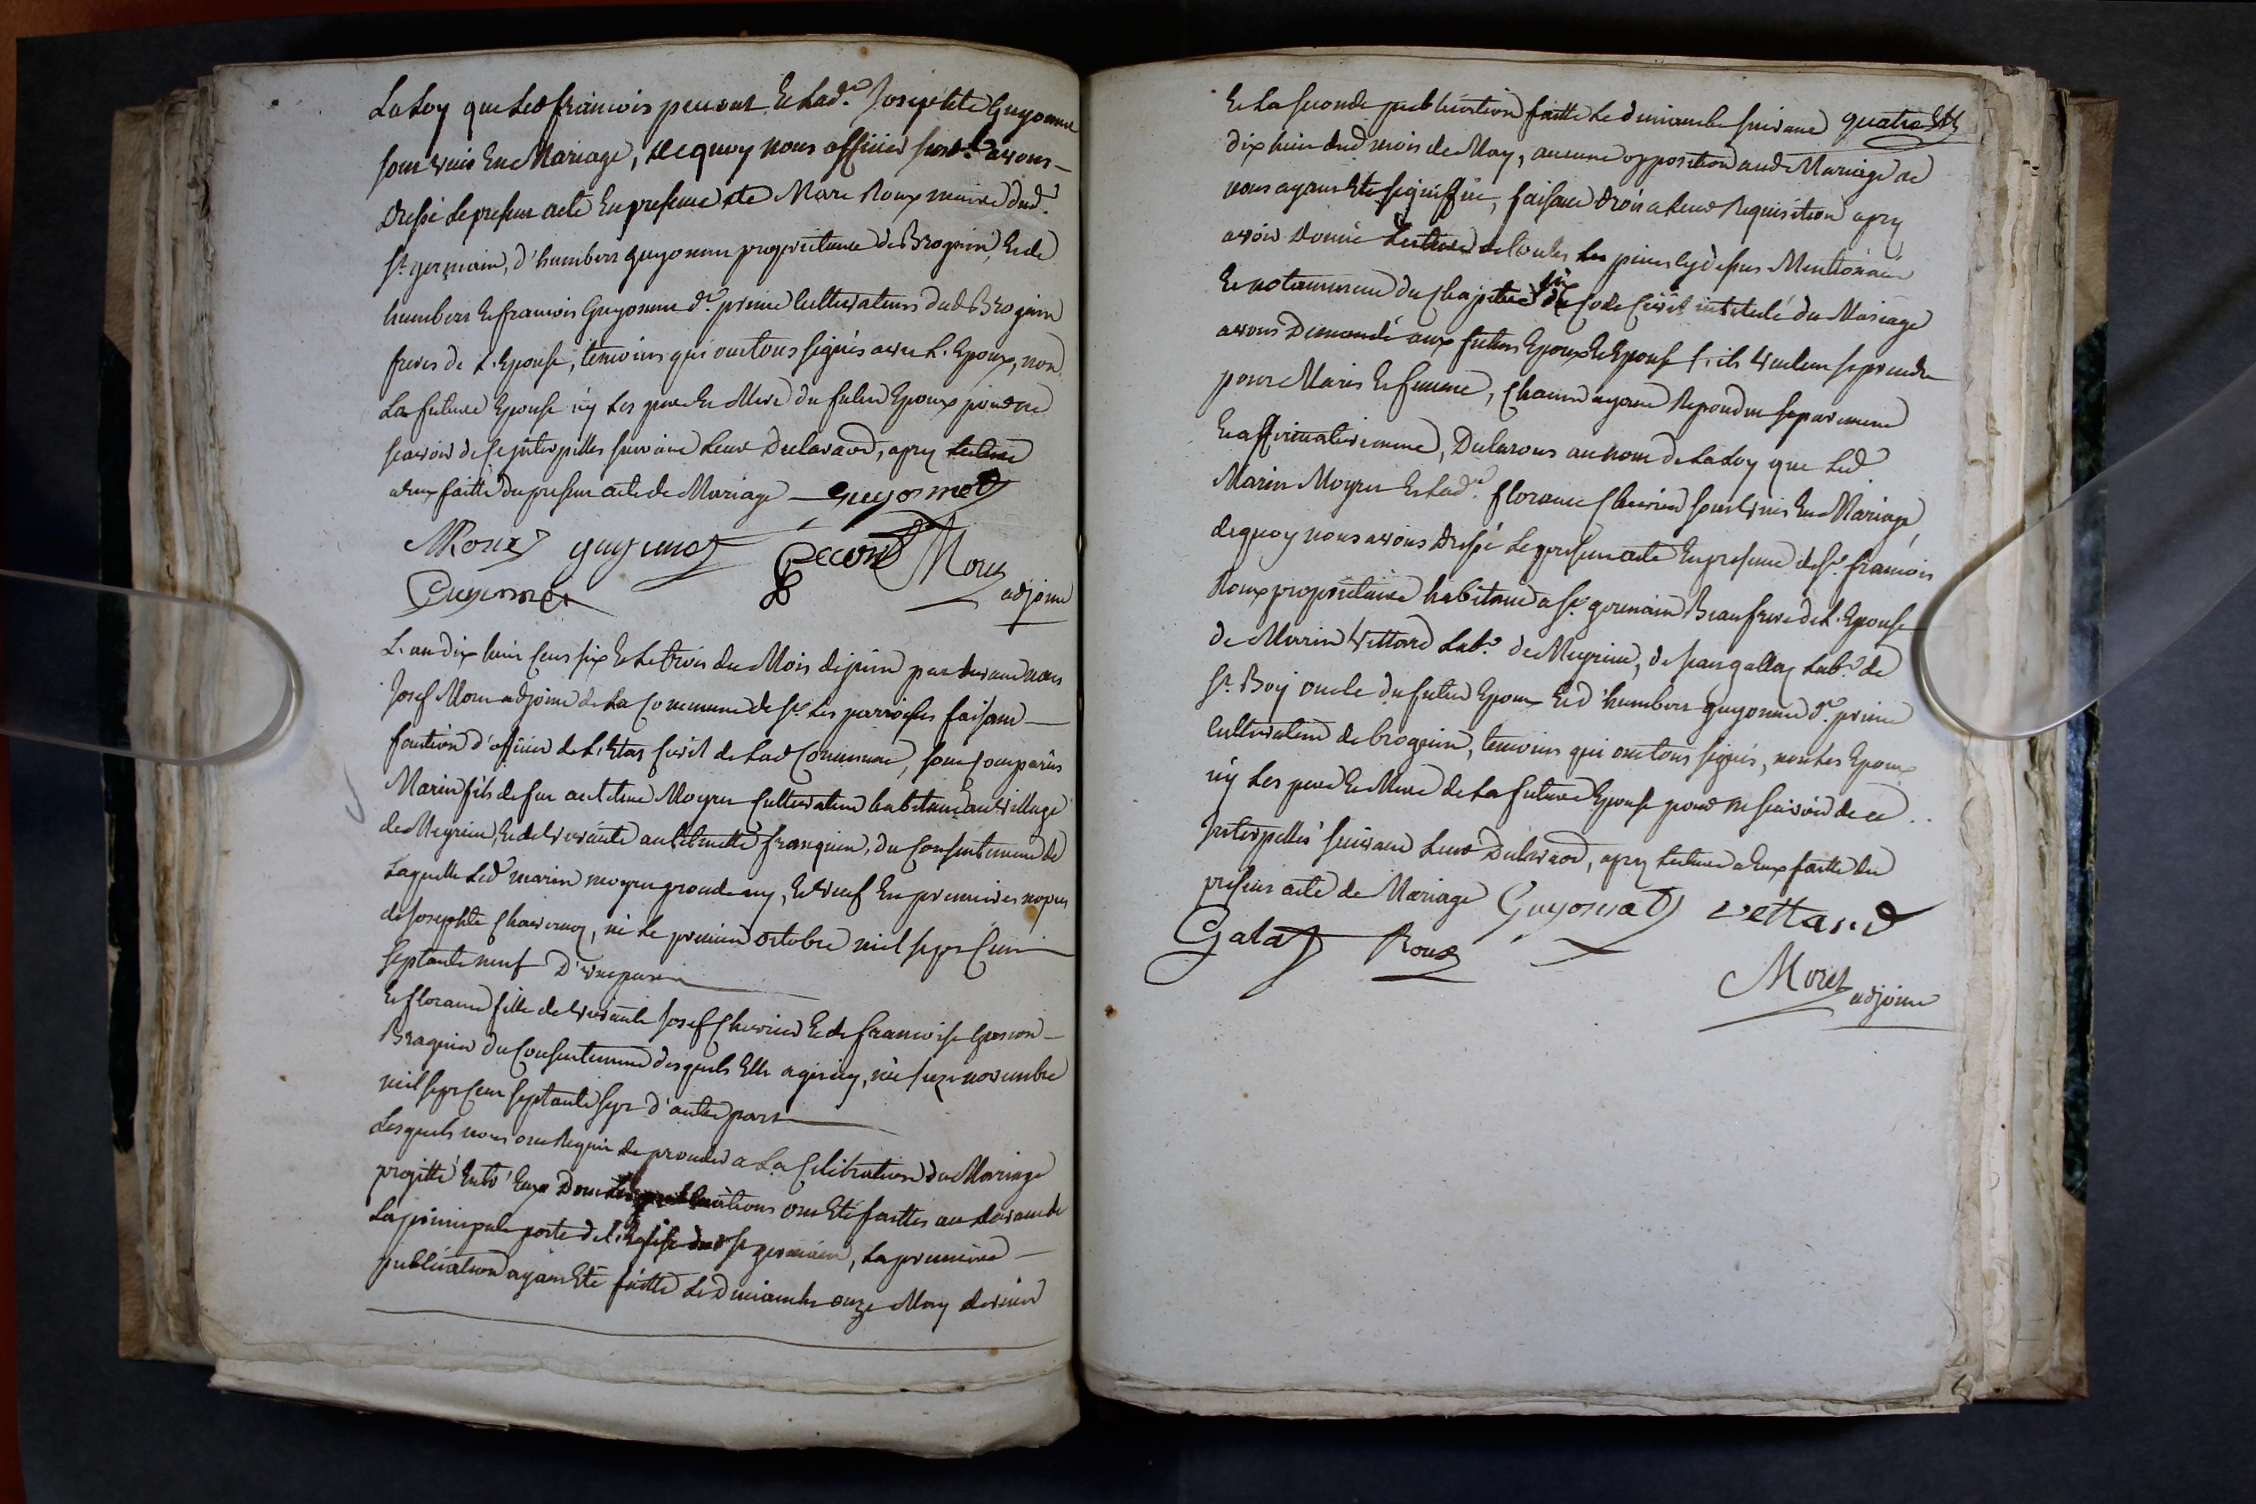 La Loy que Led françois pecout Et Lad.e Josephte Guyonnet
sont unis En Mariage, De quoy nous officier susd.t avons
Dressé Le present acte En presence de Marc Roux maire dud.t
St germain, d'humbert guyonnet proprietaire de Brognin, Et de
humbert Et françois Guyonnet d.t cultivateurs dud Brognin
freres de L'Epouse, temoins qui ont tous signés avec L'Epoux, non
La future Epouse n'y Les pere Et Mere du futur Epoux pour ne
scavoir de ce interpelles suivant Leur Declaraon, apres Lecture
a Eux faitte du present acte de Mariage Guyonnet
MRoux guyonnet Morez
Guyonnet adjoint
L'an dix huit Cent six Et Le trois du Mois de juin par devant nous
Josef Morez adjoint de La Commune de St Les parroisses faisant
fonction d'officier de L'Etat Civil de Lad Commune, sont Comparus
Marin fils de feu anthelme Moyret Cultivateur habitant au village
de Meyrieu, Et de vivante anthelmette franquin, du Consentement de
Laquelle Led marin moyret procede icy, Et veuf En premieres nopces
de Josephte, né Le premier octobre mil sept Cent
septante neuf D'une part
Et florance fille de vivants Josef Chevrier Et de francoise
Brognin du Consentement desquels Elle agit icy, née seize novembre
mil sept Cent septante sept d'autre part
Lesquels nous ont Requis de proceder a La Celebration du Mariage
projetté Entr'Eux Dont Les publications ont Eté faittes au devant de
La principale porte de L'Eglise dud St germain, La premiere
publication ayant Eté faitte Le Dimanche onze May dernier
Et La seconde publication faitte Le dimanche suivant
dix huit dud mois de May, aucune opposition aud Mariage ne
nous ayant Eté signiffiée, faisant droit a Leur Requisition apres
avoir Donné Lecture de toutes Les pieces cy dessus Mentionnées
Et notamment du Chapitre six du Code Civil intitulé du Mariage
avons Demandé aux futurs Epoux Et Epouse s'ils veulent se prendre
pour Maris Et femme, Chacun ayant Repondu separement
Et affirmativement, Declarons au nom de La Loy que Led
Marin Moyret Et Lad.e florance Chevrier sont unis En Mariage,
de quoy nous avons Dressé Le present acte En presence de Sr francois
Roux proprietaire habitant a St germain Beaufrere de L'Epouse
de Marin Vettard Lab.r de Meyrieu, de jean gallay Lab.r de
St Boy oncle du futur Epoux Et d'humbert guyonnet d.t
cultivateur de brognin, temoins qui ont tous signés, non Les Epoux
n'y Les pere Et Mere de La future Epouse pour ne scavoir de ce
interpellés suivant Leur Declaraon, apres Lecture a Eux faitte du
present acte de Mariage Guyonnet vettard
Galay Roux
Morez adjoint